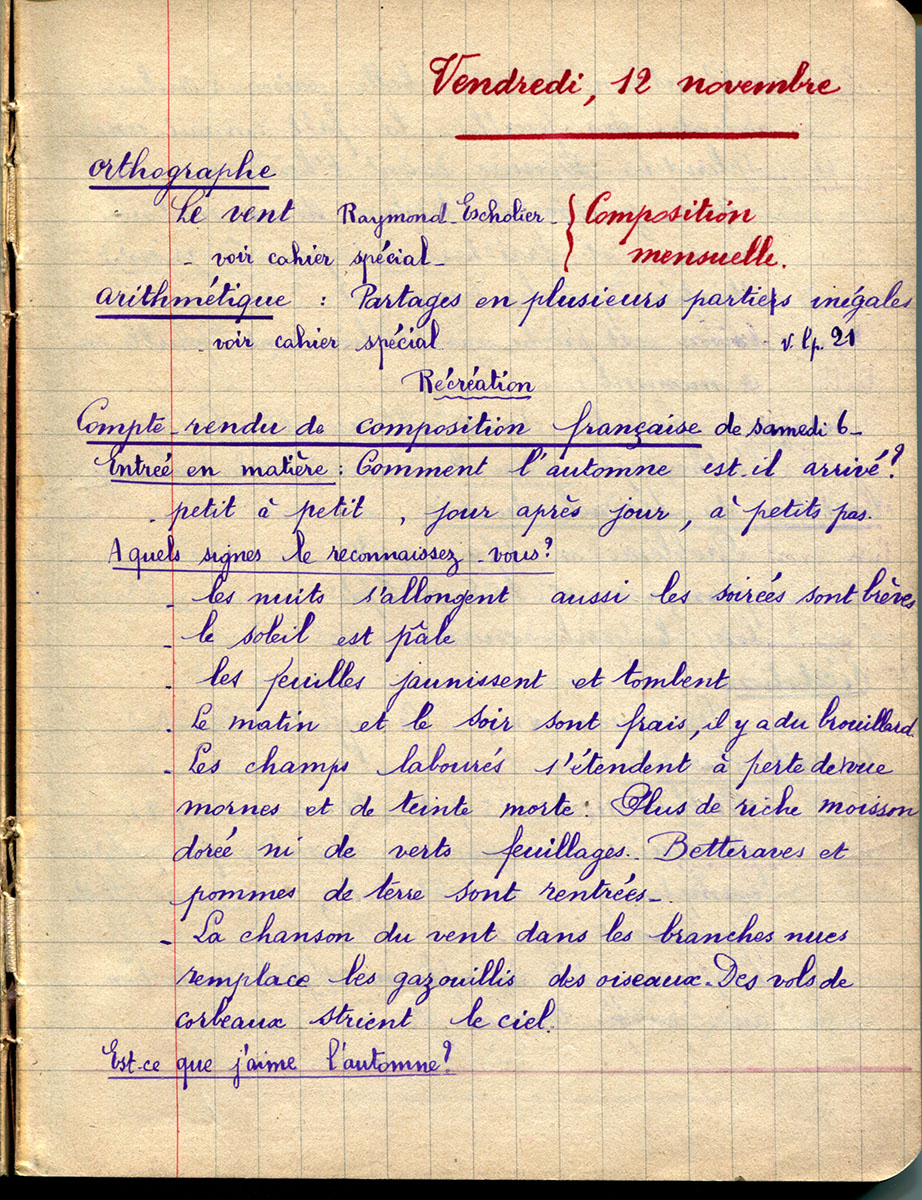 Vendredi, 12 novembre
orthographe
Le vent Raymond-Escholier- } Composition
- voir cahier spécial - mensuelle.
arithmétique : Partages en plusieurs parties inégales
- voir cahier spécial - v. l p. 21
Récréation
Compte-rendu de composition française de samedi 6-
Entreé en matière : Comment l'automne est-il arrivé ?
- petit à petit, jour après jour, à petits pas.
A quels signes le reconnaissez-vous ?
- les nuits s'allongent aussi les soirées sont brèves
- le soleil est pâle
- les feuilles jaunissent et tombent
- Le matin et le soir sont frais, il y a du brouillard.
- Les champs labourés s'étendent à perte de vue
mornes et de teinte morte. Plus de riche moisson
doreé ni de verts feuillages. Betteraves et
pommes de terre sont rentrées-
- La chanson du vent dans les branches nues
remplace les gazouillis des oiseaux. Des vols de
corbeaux strient le ciel.
Est-ce que j'aime l'automne ?